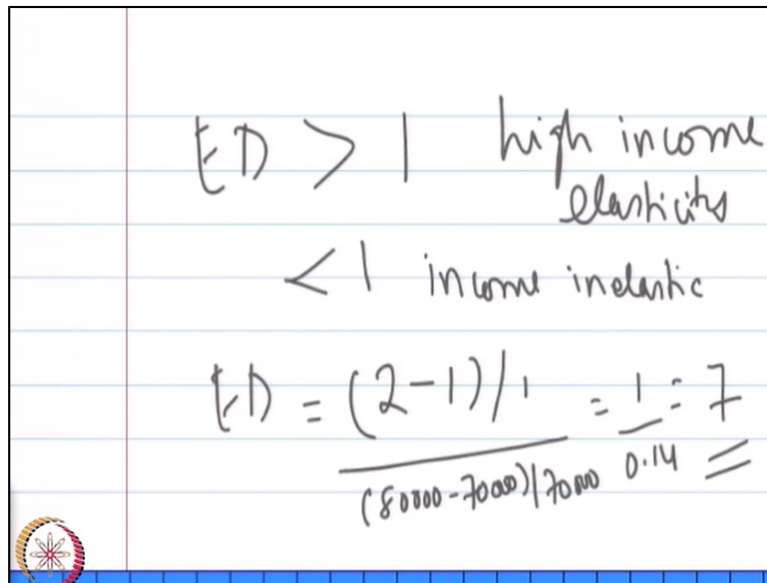 ED > 1 high income
elasticity
< 1 income inelastic
ED = (2-1)/1 = 1 = 7
(80000-70000)/70000 0.14